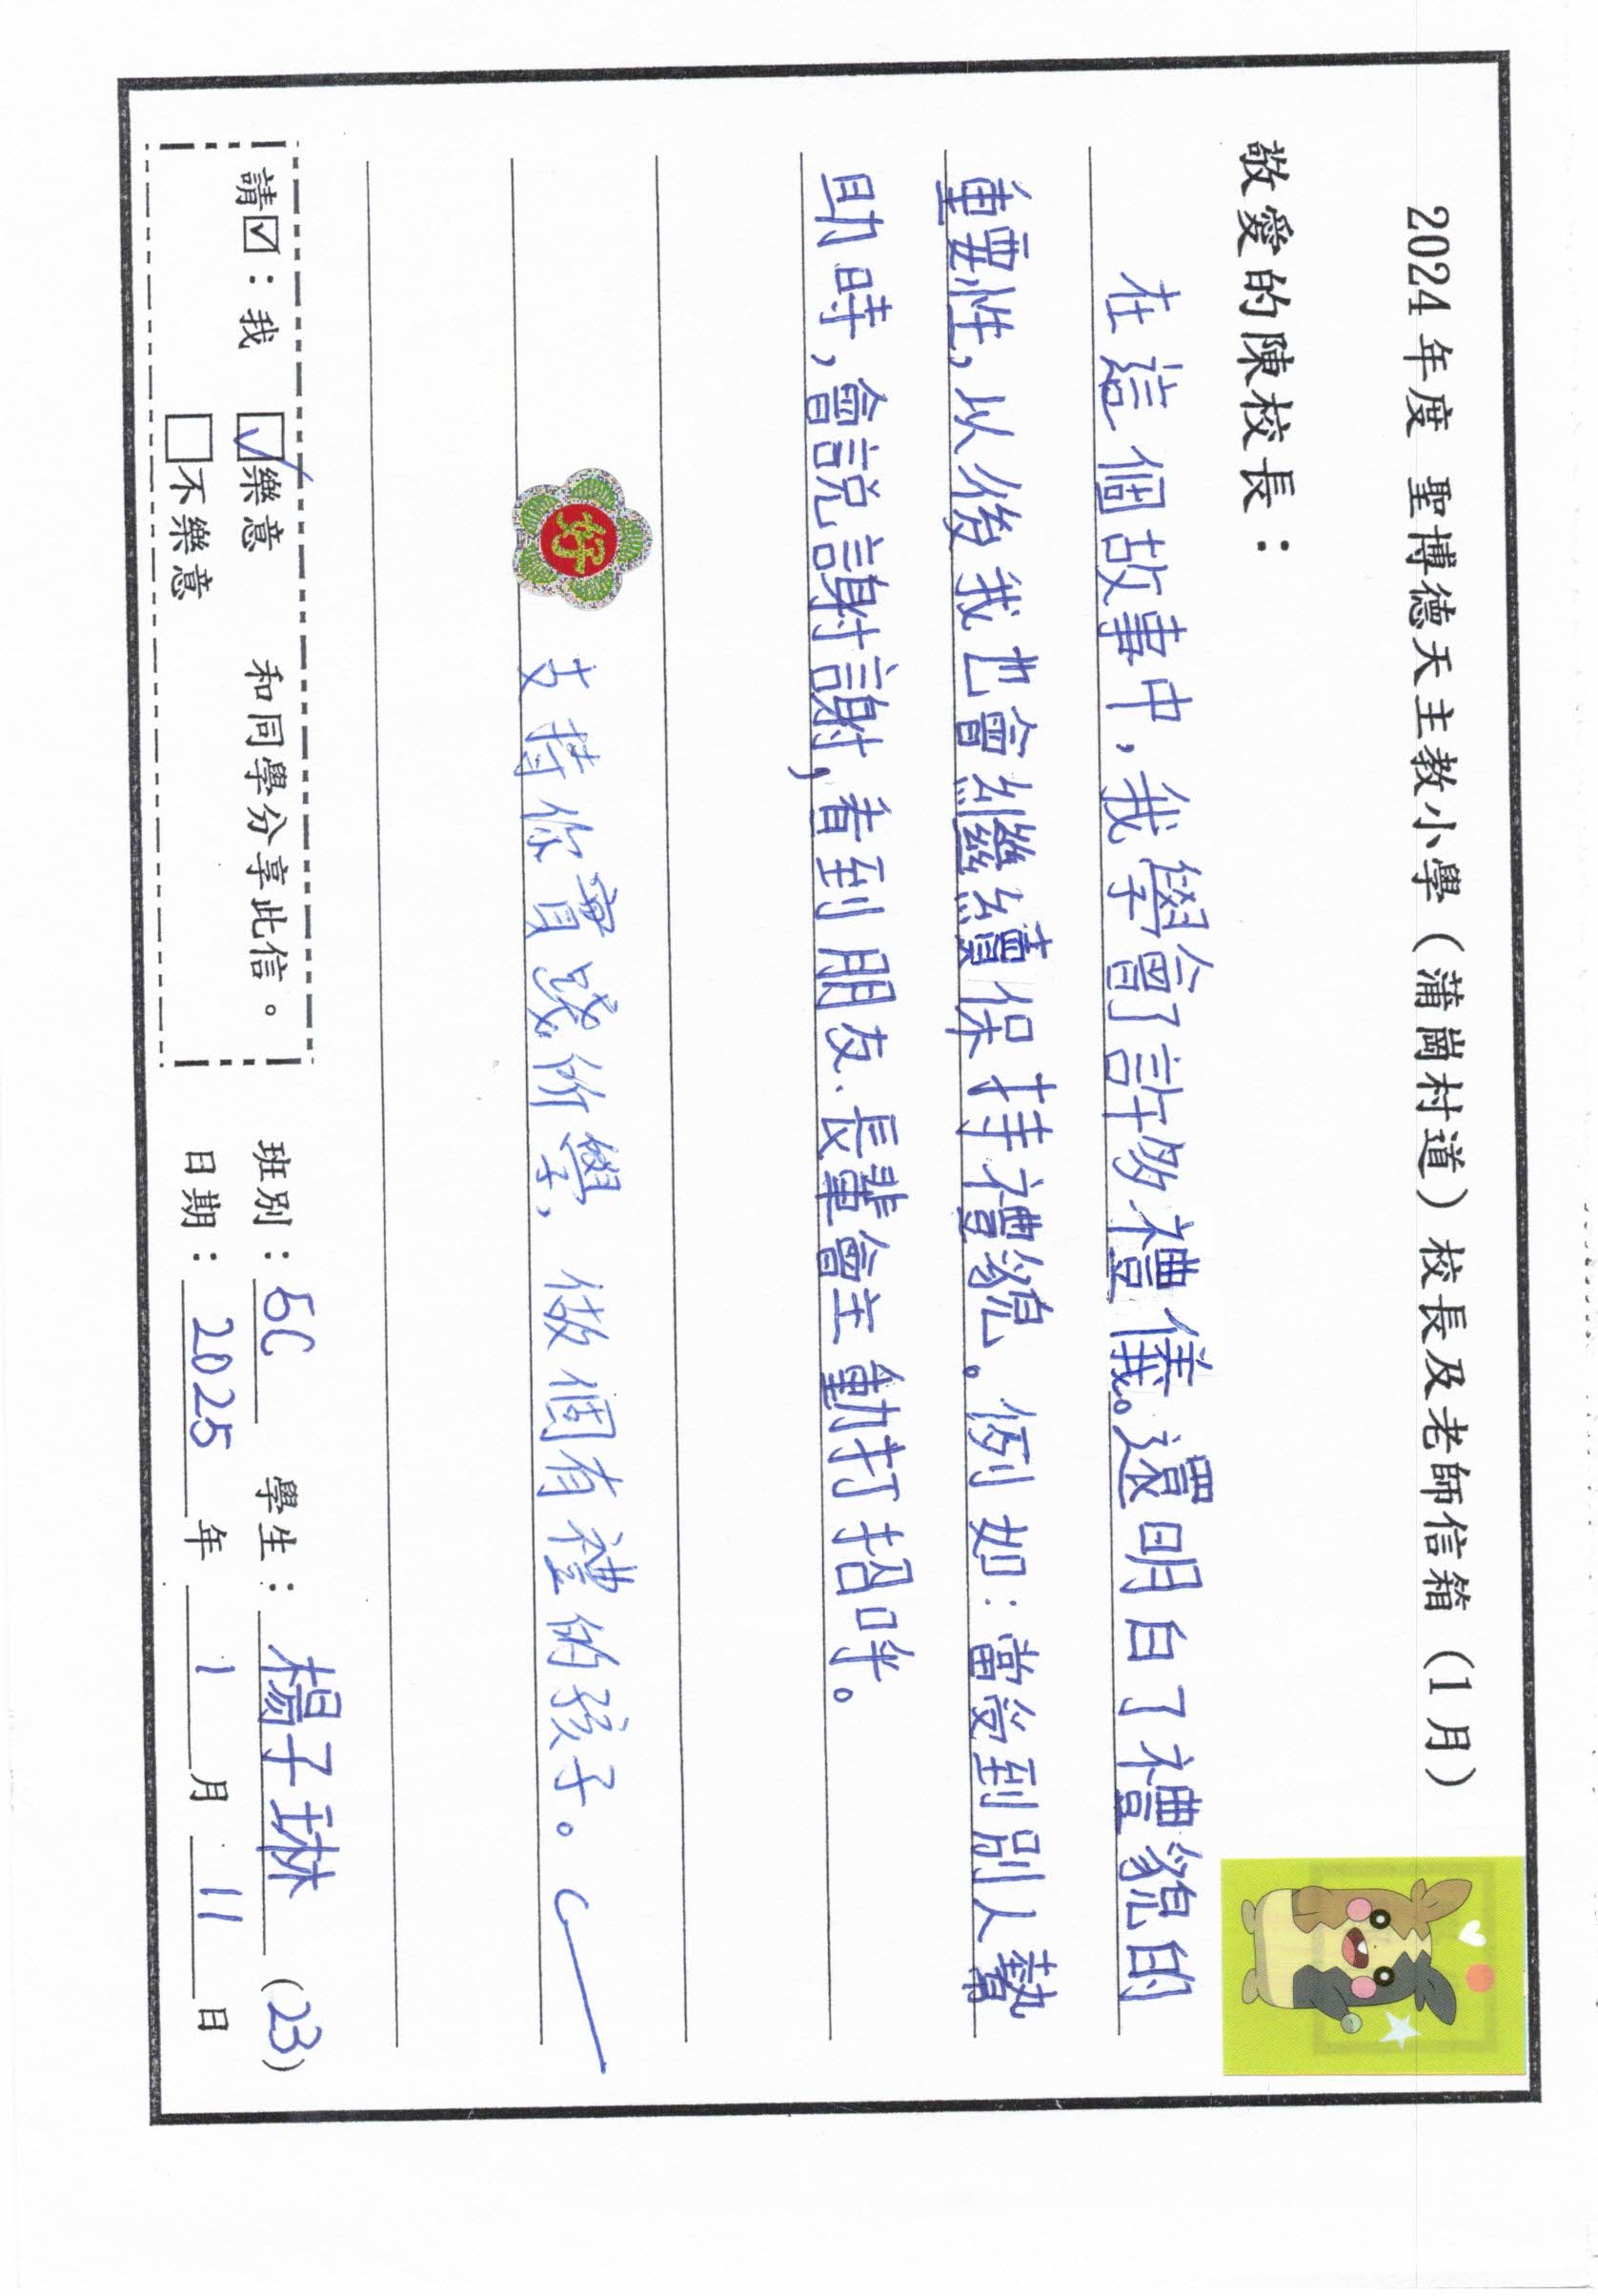 2024年度 聖博德天主教小學（蒲崗村道）校長及老師信箱（1月）
敬愛的陳校長：
在這個故事中，我學會了許多禮儀。還明白了禮貌的
重要性，以後我也會繼續保持禮貌。例如：當受到別人幫
助時，會說謝謝，看到朋友、長輩會主動打招呼。
好
支持你實踐所學，做個有禮的孩子。
請☑：我 ☑樂意 和同學分享此信。
□不樂意
班別：5C 學生：楊子琳 (23)
日期：2025年1月11日